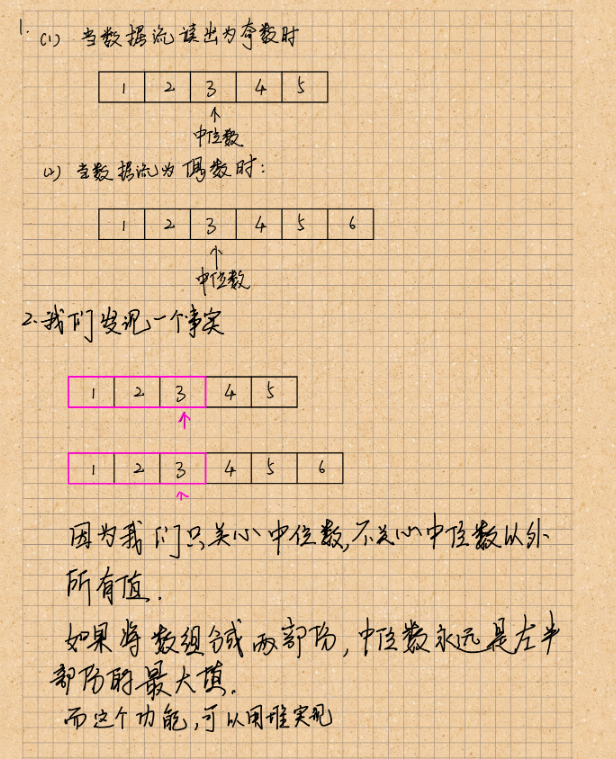 1. (1) 当数据流读出为奇数时
1 2 3 4 5
↑
中位数
(2) 当数据流为偶数时:
1 2 3 4 5 6
↑
中位数
2.我们发现一个事实
1 2 3 4 5
↑
1 2 3 4 5 6
↑
因为我们只关心中位数,不关心中位数以外
所有值.
如果将数组分成两部份,中位数永远是左半
部份的最大值.
而这个功能,可以用堆实现